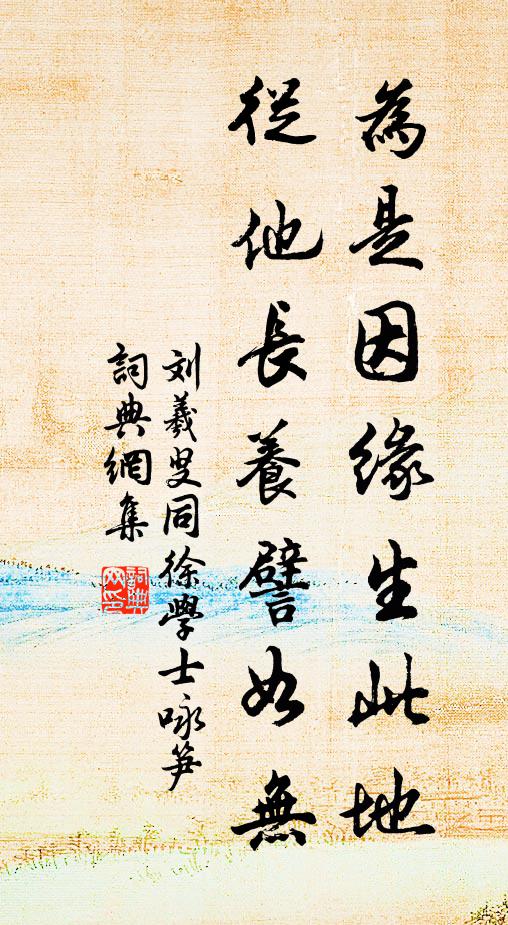 為是因緣生此地
從他長養譬如無
刘羲叟同徐學士咏笋
詞典網集
詞典